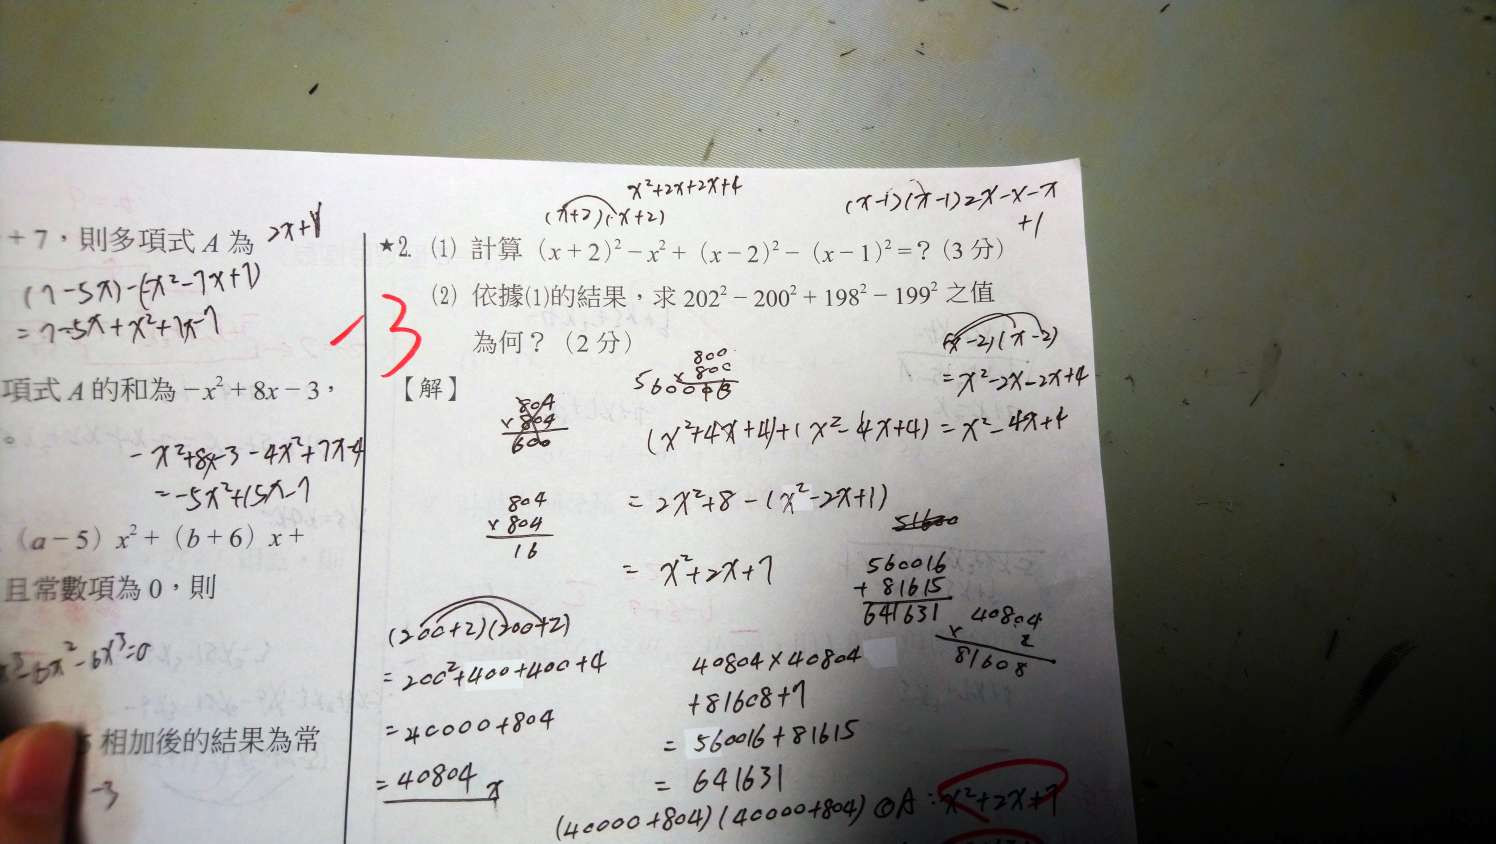 +7，則多項式 A 為 2x+1
(7-5x)-(-x²-7x+7)
=7-5x+x²+7x-7
項式 A 的和為 -x²+8x-3，
-x²+8x-3-4x²+7x-4
=-5x²+15x-7
(a-5)x²+(b+6)x+
且常數項為 0，則
-6x²-6x³=0
相加後的結果為常
-3
x²+2x+2x+4
(x+2)(x+2)
(x-1)(x-1)=x-x-x
+1
★2. (1) 計算 (x+2)²-x²+(x-2)²-(x-1)²=？(3 分)
(2) 依據(1)的結果，求 202²-200²+198²-199² 之值
為何？（2 分）
-3
【解】
800
×800
(x-2)(x-2)
=x²-2x-2x+4
804
×804
600
(x²+4x+4)+(x²-4x+4)=x²-4x+4
=2x²+8-(x²-2x+1)
804
×804
16
=x²+2x+7
51600
560016
+81615
641631
40804
×2
81608
(200+2)(200+2)
=200²+400+400+4
=40000+804
=40804
x
40804×40804
+81608+7
=560016+81615
=641631
(40000+804)(40000+804)
A:x²+2x+7